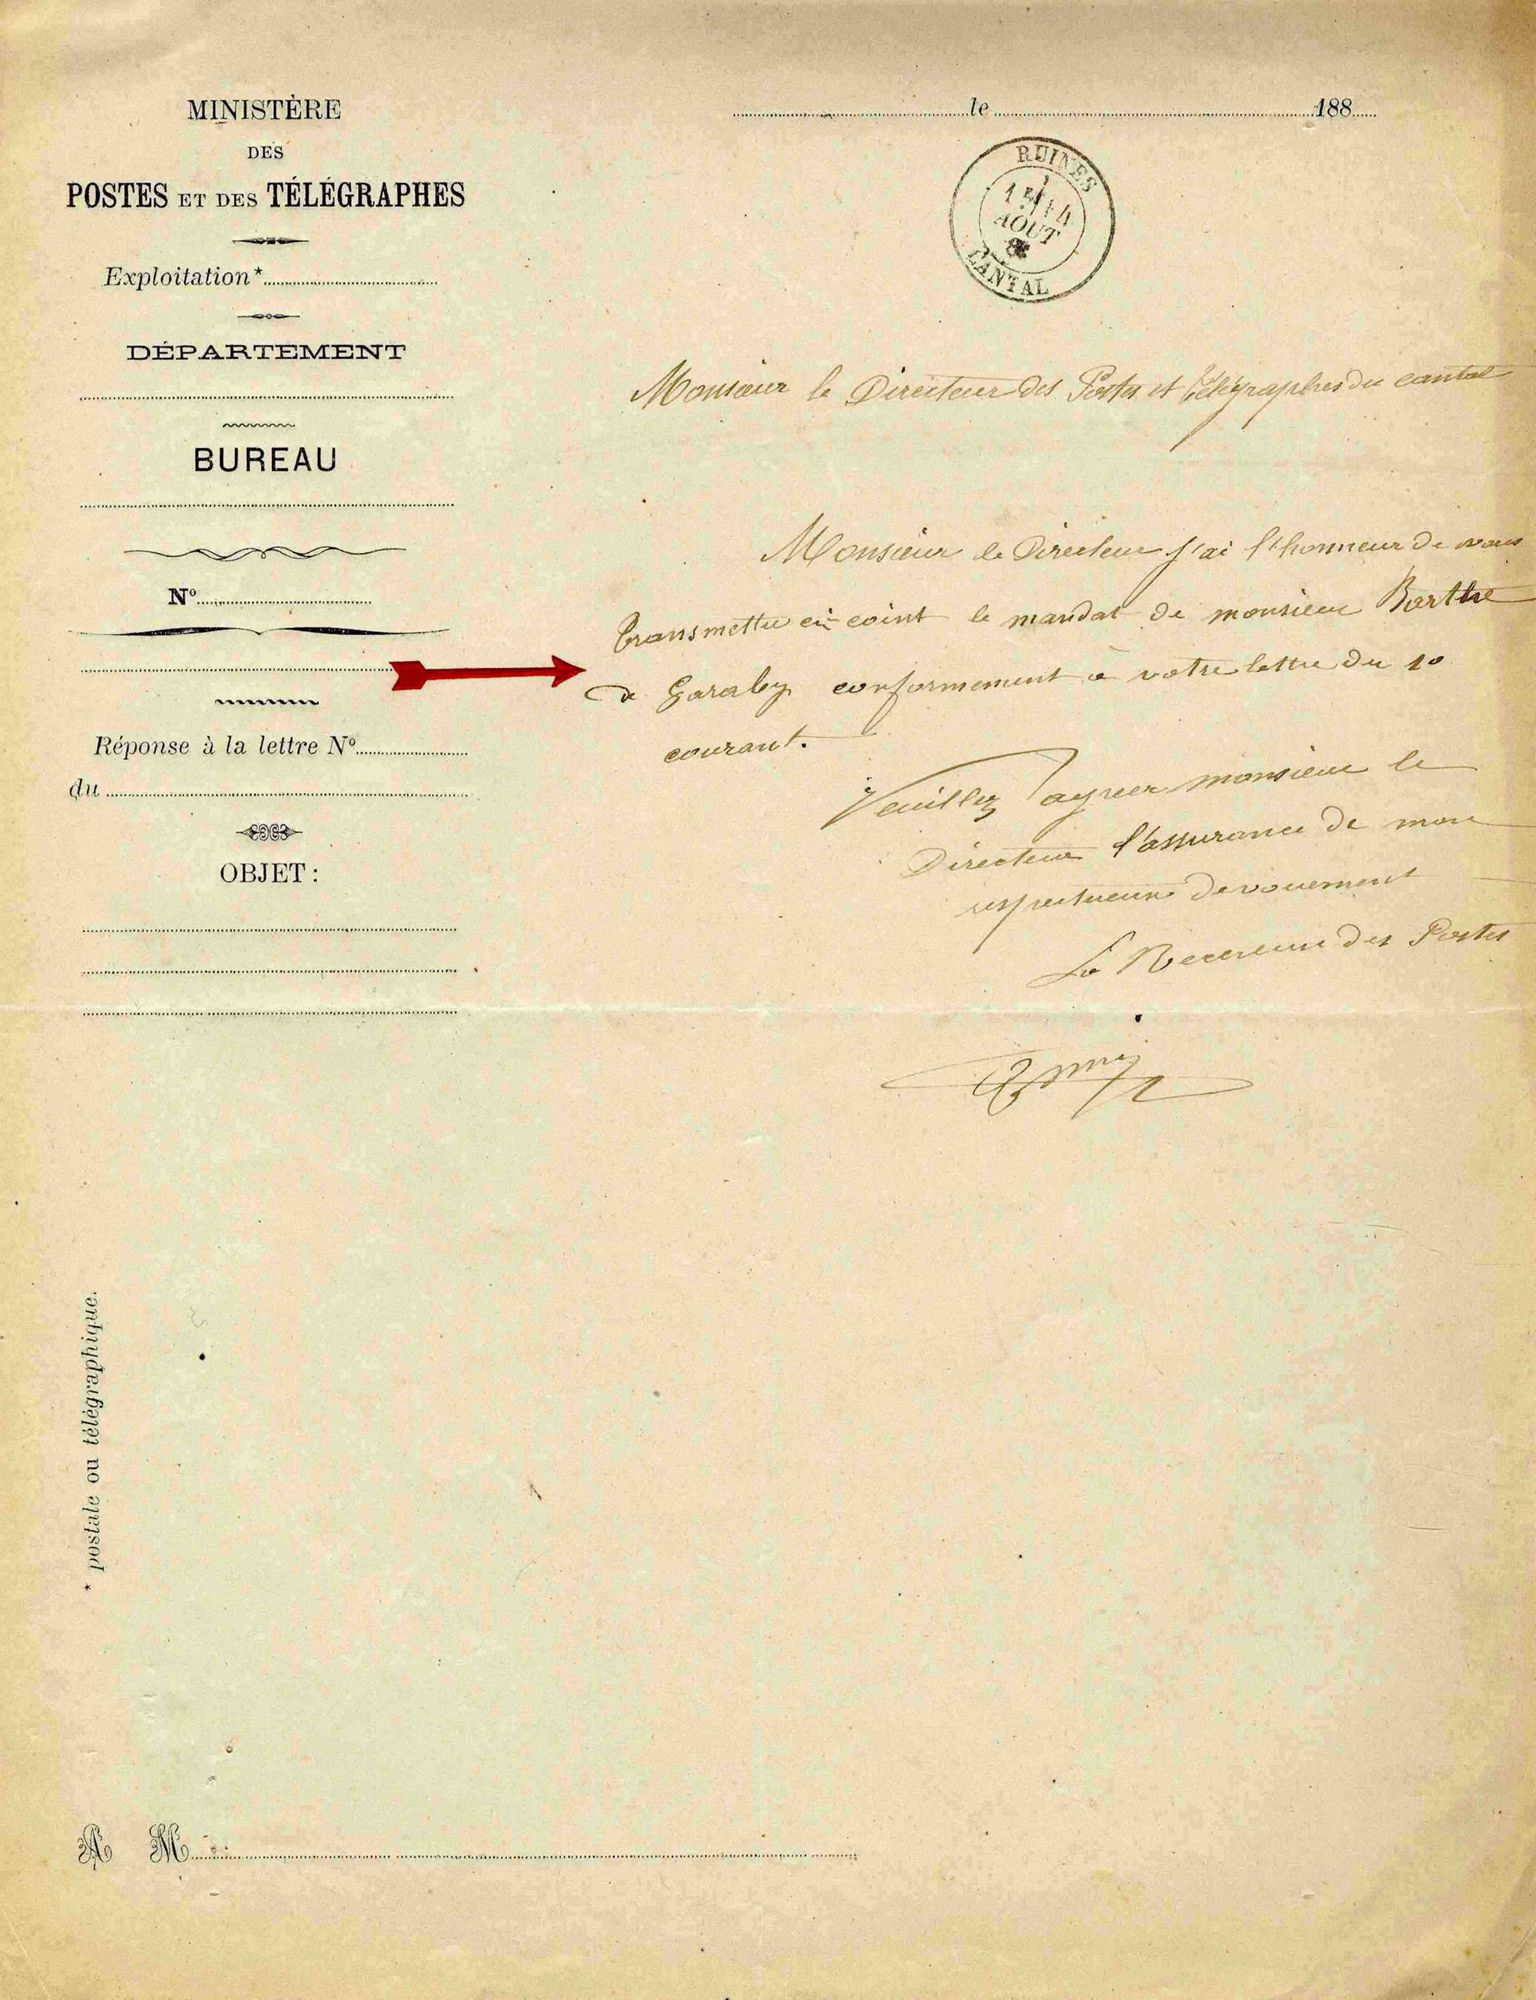 MINISTÈRE
DES
POSTES ET DES TÉLÉGRAPHES
Exploitation*
DÉPARTEMENT
BUREAU
N°
Réponse à la lettre N°
du
OBJET :
* postale ou télégraphique.
A M
le 188
RUINES
AOUT
CANTAL
Monsieur le Directeur des Postes et Télégraphes du cantal
Monsieur le Directeur j'ai l'honneur de vous
transmettre ci-coint le mandat de monsieur Barthe
de Garaby conformement à votre lettre du 10
courant.
Veuillez agreer monsieur le
Directeur l'assurance de mon
respectueux devouement
La Receveuse des Postes